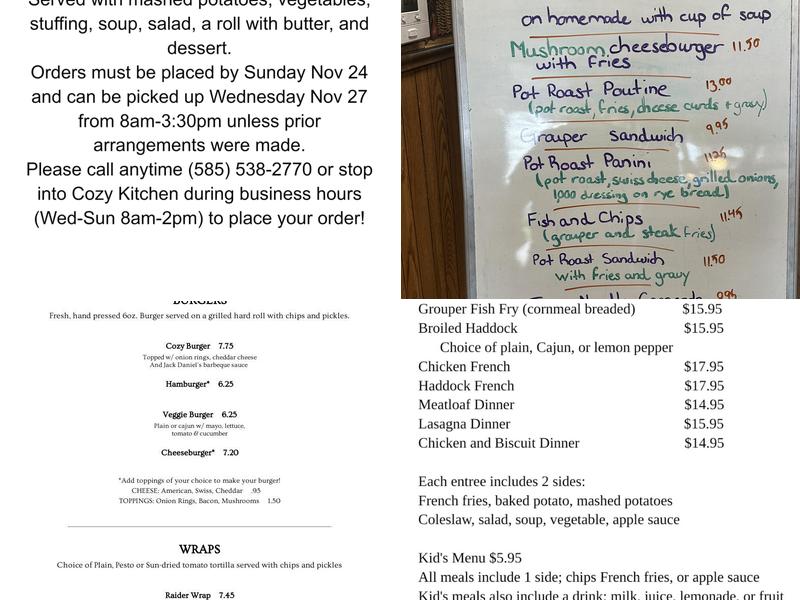 Served with mashed potatoes, vegetables,
stuffing, soup, salad, a roll with butter, and
dessert.
Orders must be placed by Sunday Nov 24
and can be picked up Wednesday Nov 27
from 8am-3:30pm unless prior
arrangements were made.
Please call anytime (585) 538-2770 or stop
into Cozy Kitchen during business hours
(Wed-Sun 8am-2pm) to place your order!
on homemade with cup of soup
Mushroom cheeseburger 11.50
with fries
Pot Roast Poutine 13.00
(pot roast, fries, cheese curds + gravy)
Grouper Sandwich 9.95
Pot Roast Panini 11.25
(pot roast, swiss cheese, grilled onions,
1000 dressing on rye bread)
Fish and Chips 11.45
(grouper and steak fries)
Pot Roast Sandwich 11.50
with fries and gravy
BURGERS
Fresh, hand pressed 6oz. Burger served on a grilled hard roll with chips and pickles.
Cozy Burger 7.75
Topped w/ onion rings, cheddar cheese
And Jack Daniel's barbeque sauce
Hamburger* 6.25
Veggie Burger 6.25
Plain or cajun w/ mayo, lettuce,
tomato & cucumber
Cheeseburger* 7.20
*Add toppings of your choice to make your burger!
CHEESE: American, Swiss, Cheddar .95
TOPPINGS: Onion Rings, Bacon, Mushrooms 1.50
WRAPS
Choice of Plain, Pesto or Sun-dried tomato tortilla served with chips and pickles
Raider Wrap 7.45
Grouper Fish Fry (cornmeal breaded) $15.95
Broiled Haddock $15.95
Choice of plain, Cajun, or lemon pepper
Chicken French $17.95
Haddock French $17.95
Meatloaf Dinner $14.95
Lasagna Dinner $15.95
Chicken and Biscuit Dinner $14.95
Each entree includes 2 sides:
French fries, baked potato, mashed potatoes
Coleslaw, salad, soup, vegetable, apple sauce
Kid's Menu $5.95
All meals include 1 side; chips French fries, or apple sauce
Kid's meals also include a drink: milk, juice, lemonade, or fruit